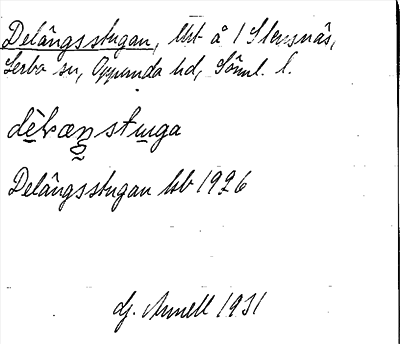 Delångsstugan, lht å 1 Stensnäs,
Lerbo sn, Oppunda hd, Söml. l.
dèlvæŋstuga
Delångsstugan kb 1926
G. Annell 1931